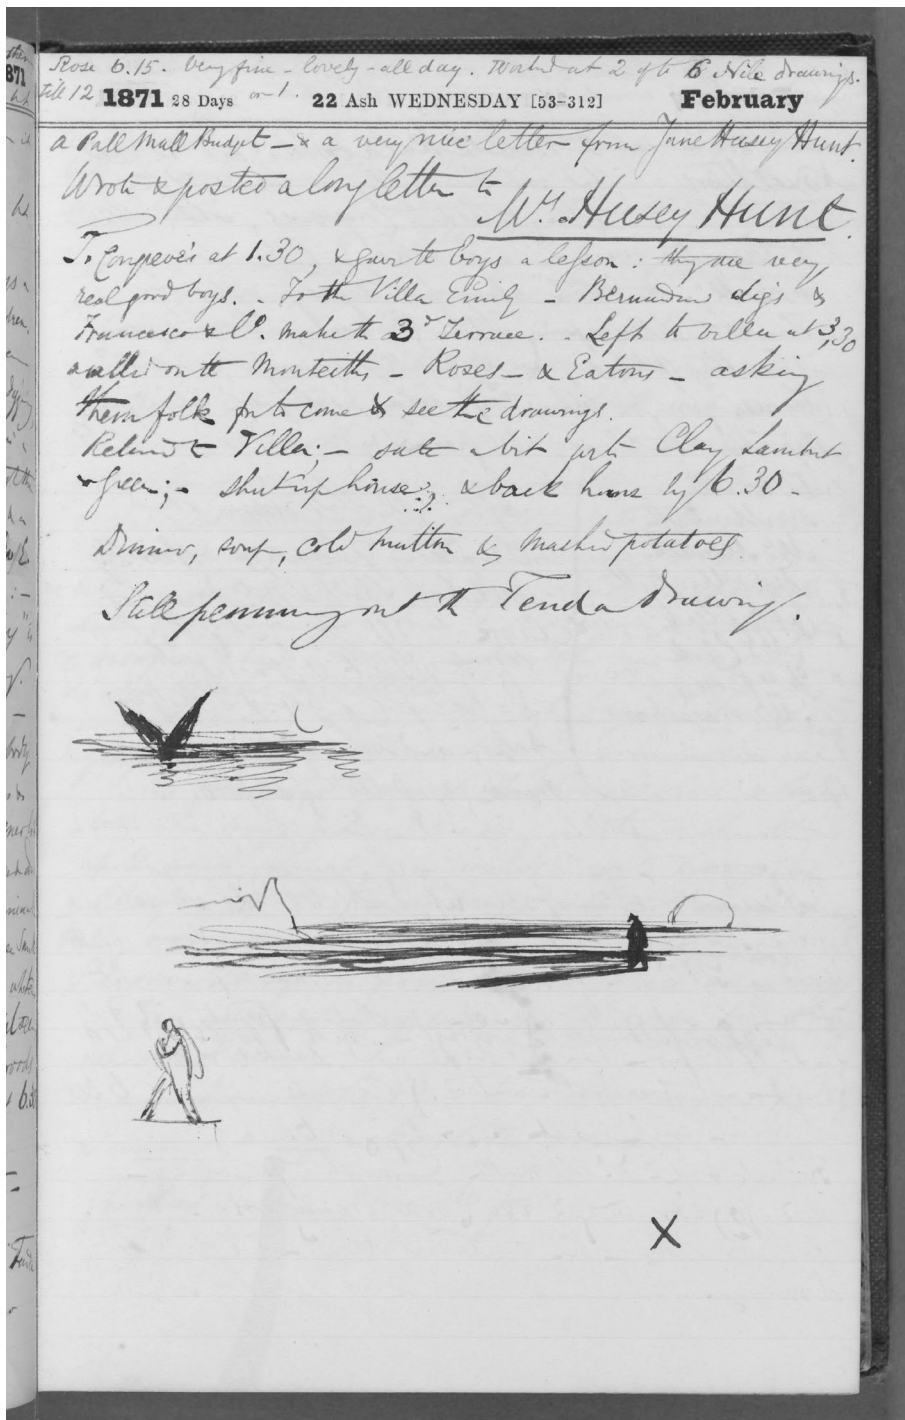 Rose 6.15. Very fine - lovely - all day. Worked at 2 of the 6 Nile drawings.
till 12 or 1.
1871 28 Days 22 Ash WEDNESDAY [53-312] February
a Pall Mall Budget - & a very nice letter from Jane Husey Hunt.
Wrote & posted a long letter to
W. Husey Hunt.
To Congreve's at 1.30, & gave the boys a lesson: they are very
real good boys. - To the Villa Emily - Bernardino digs &
Francesco & Co. make the 3d Terrace. - Left the villa at 3.30
& called on the Monteiths - Roses - & Eatons - asking
them folk for to come & see the drawings.
Returned to Villa; - sate a bit with Clay Lambert
& Green; - shut up house, & back home by 6.30 -
Dinner, soup, cold mutton & mashed potatoes.
Still penning out the Tenda Drawing.
X